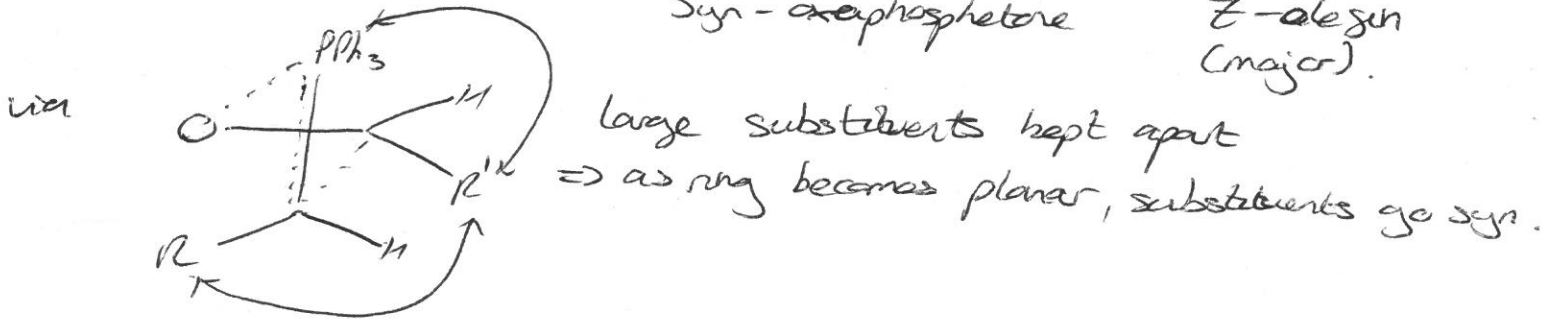 Syn-oxaphosphetane Z-olefin
(major).
PPh3
via
O
H
large substituents kept apart
R'
=> as ring becomes planar, substituents go syn.
R
H